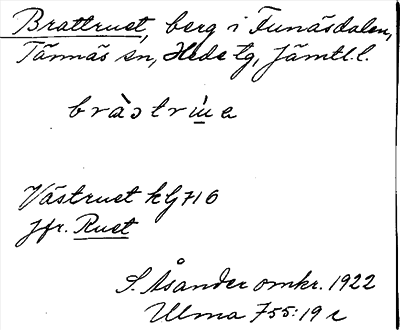 Brattruet, berg i Funäsdalen,
Tännäs sn, Hede tg, Jämtl. l.
Västruet
jfr. Ruet
S. Åsander omkr. 1922
Ulma 755:19 c